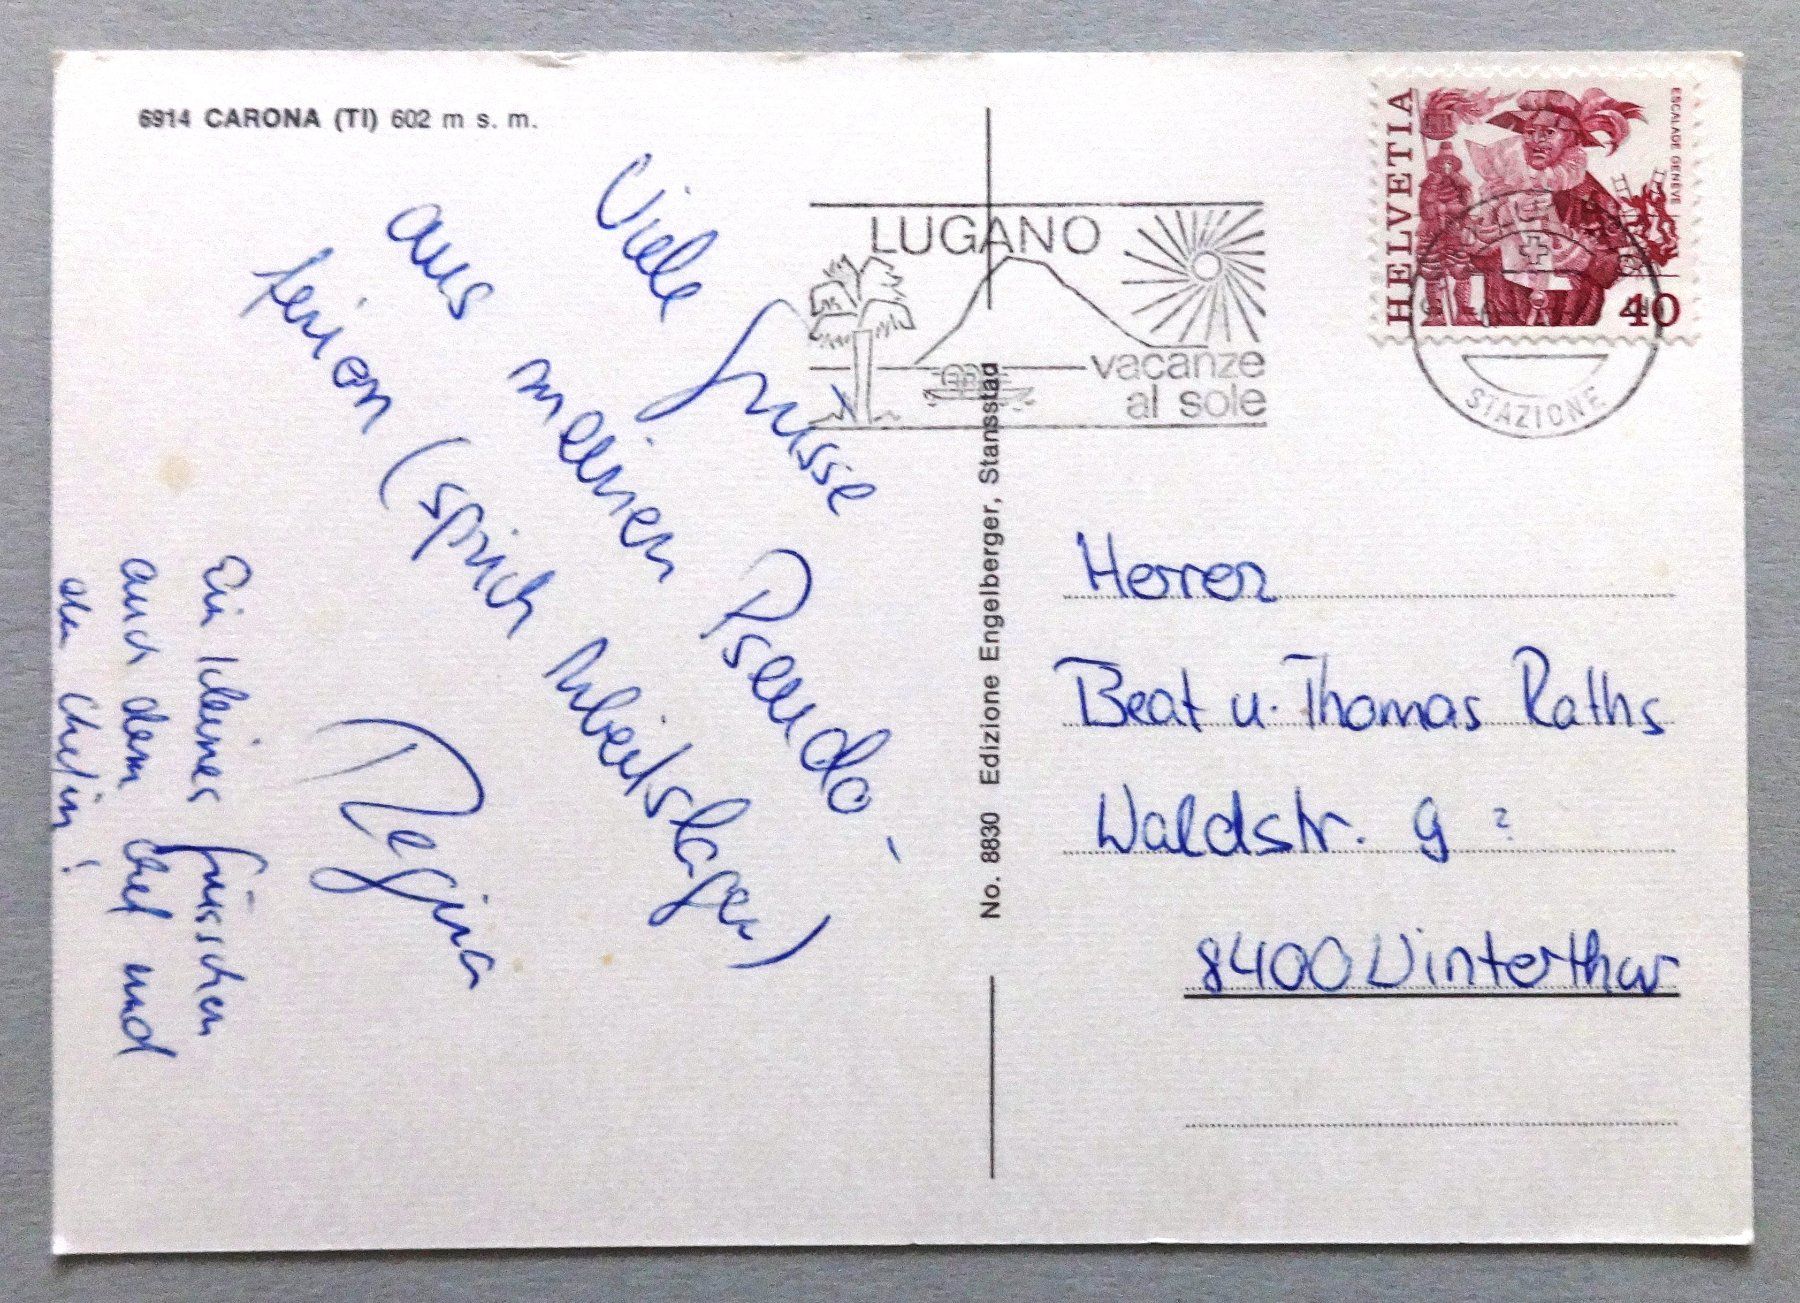 6914 CARONA (TI) 602 m s. m.
Viele Grüsse
aus meinen Pseudo-
ferien (sprich Arbeitslager)
Regina
Ein kleines Grüsschen
auch dem Chef und
der Chefin!
No. 8830 Edizione Engelberger, Stansstad
LUGANO
vacanze
al sole
HELVETIA
ESCALADE GENÈVE
40
STAZIONE
Herren
Beat u. Thomas Raths
Waldstr. 9 ?
8400 Winterthur